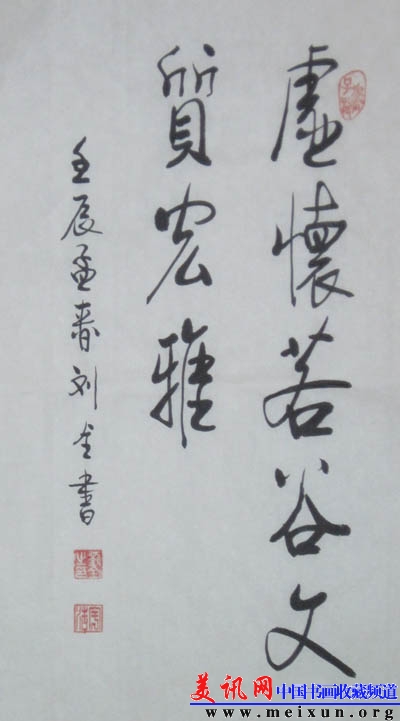 虛懷若谷文
質宏雅
壬辰孟春刘金書
美讯网 中国书画收藏频道
www.meixun.org